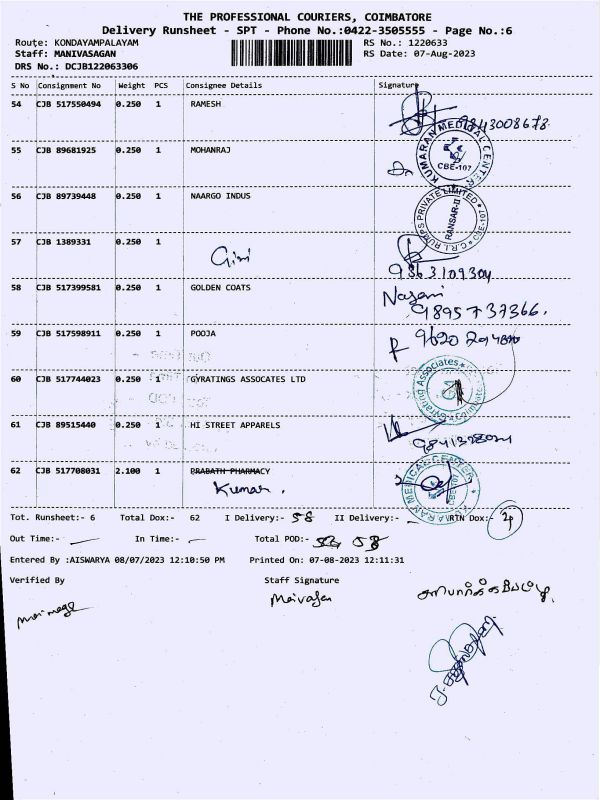 THE PROFESSIONAL COURIERS, COIMBATORE
Delivery Runsheet - SPT - Phone No.:0422-3505555 - Page No.:6
Route: KONDAYAMPALAYAM RS No.: 1220633
Staff: MANIVASAGAN RS Date: 07-Aug-2023
DRS No.: DCJB122063306
S No Consignment No Weight PCS Consignee Details Signature
54 CJB 517550494 0.250 1 RAMESH 9843008678
55 CJB 89681925 0.250 1 MOHANRAJ KUMARAN MEDICAL CENTER CBE-107
56 CJB 89739448 0.250 1 NAARGO INDUS C.R.I. PUMPS PRIVATE LIMITED RANSAR-II CBE-107
57 CJB 1389331 0.250 1 Giri 9363109304
58 CJB 517399581 0.250 1 GOLDEN COATS 9895737366.
59 CJB 517598911 0.250 1 POOJA
60 CJB 517744023 0.250 1 GYRATINGS ASSOCATES LTD Gyrating Associates Coimbatore
61 CJB 89515440 0.250 1 HI STREET APPARELS
62 CJB 517708031 2.100 1 PRABATH PHARMACY KUMARAN MEDICAL CENTER CBE-107
Kumar.
Tot. Runsheet:- 6 Total Dox:- 62 I Delivery:- 58 II Delivery:- RTN Dox:-
Out Time:- In Time:- Total POD:- 58
Entered By :AISWARYA 08/07/2023 12:10:50 PM Printed On: 07-08-2023 12:11:31
Verified By Staff Signature